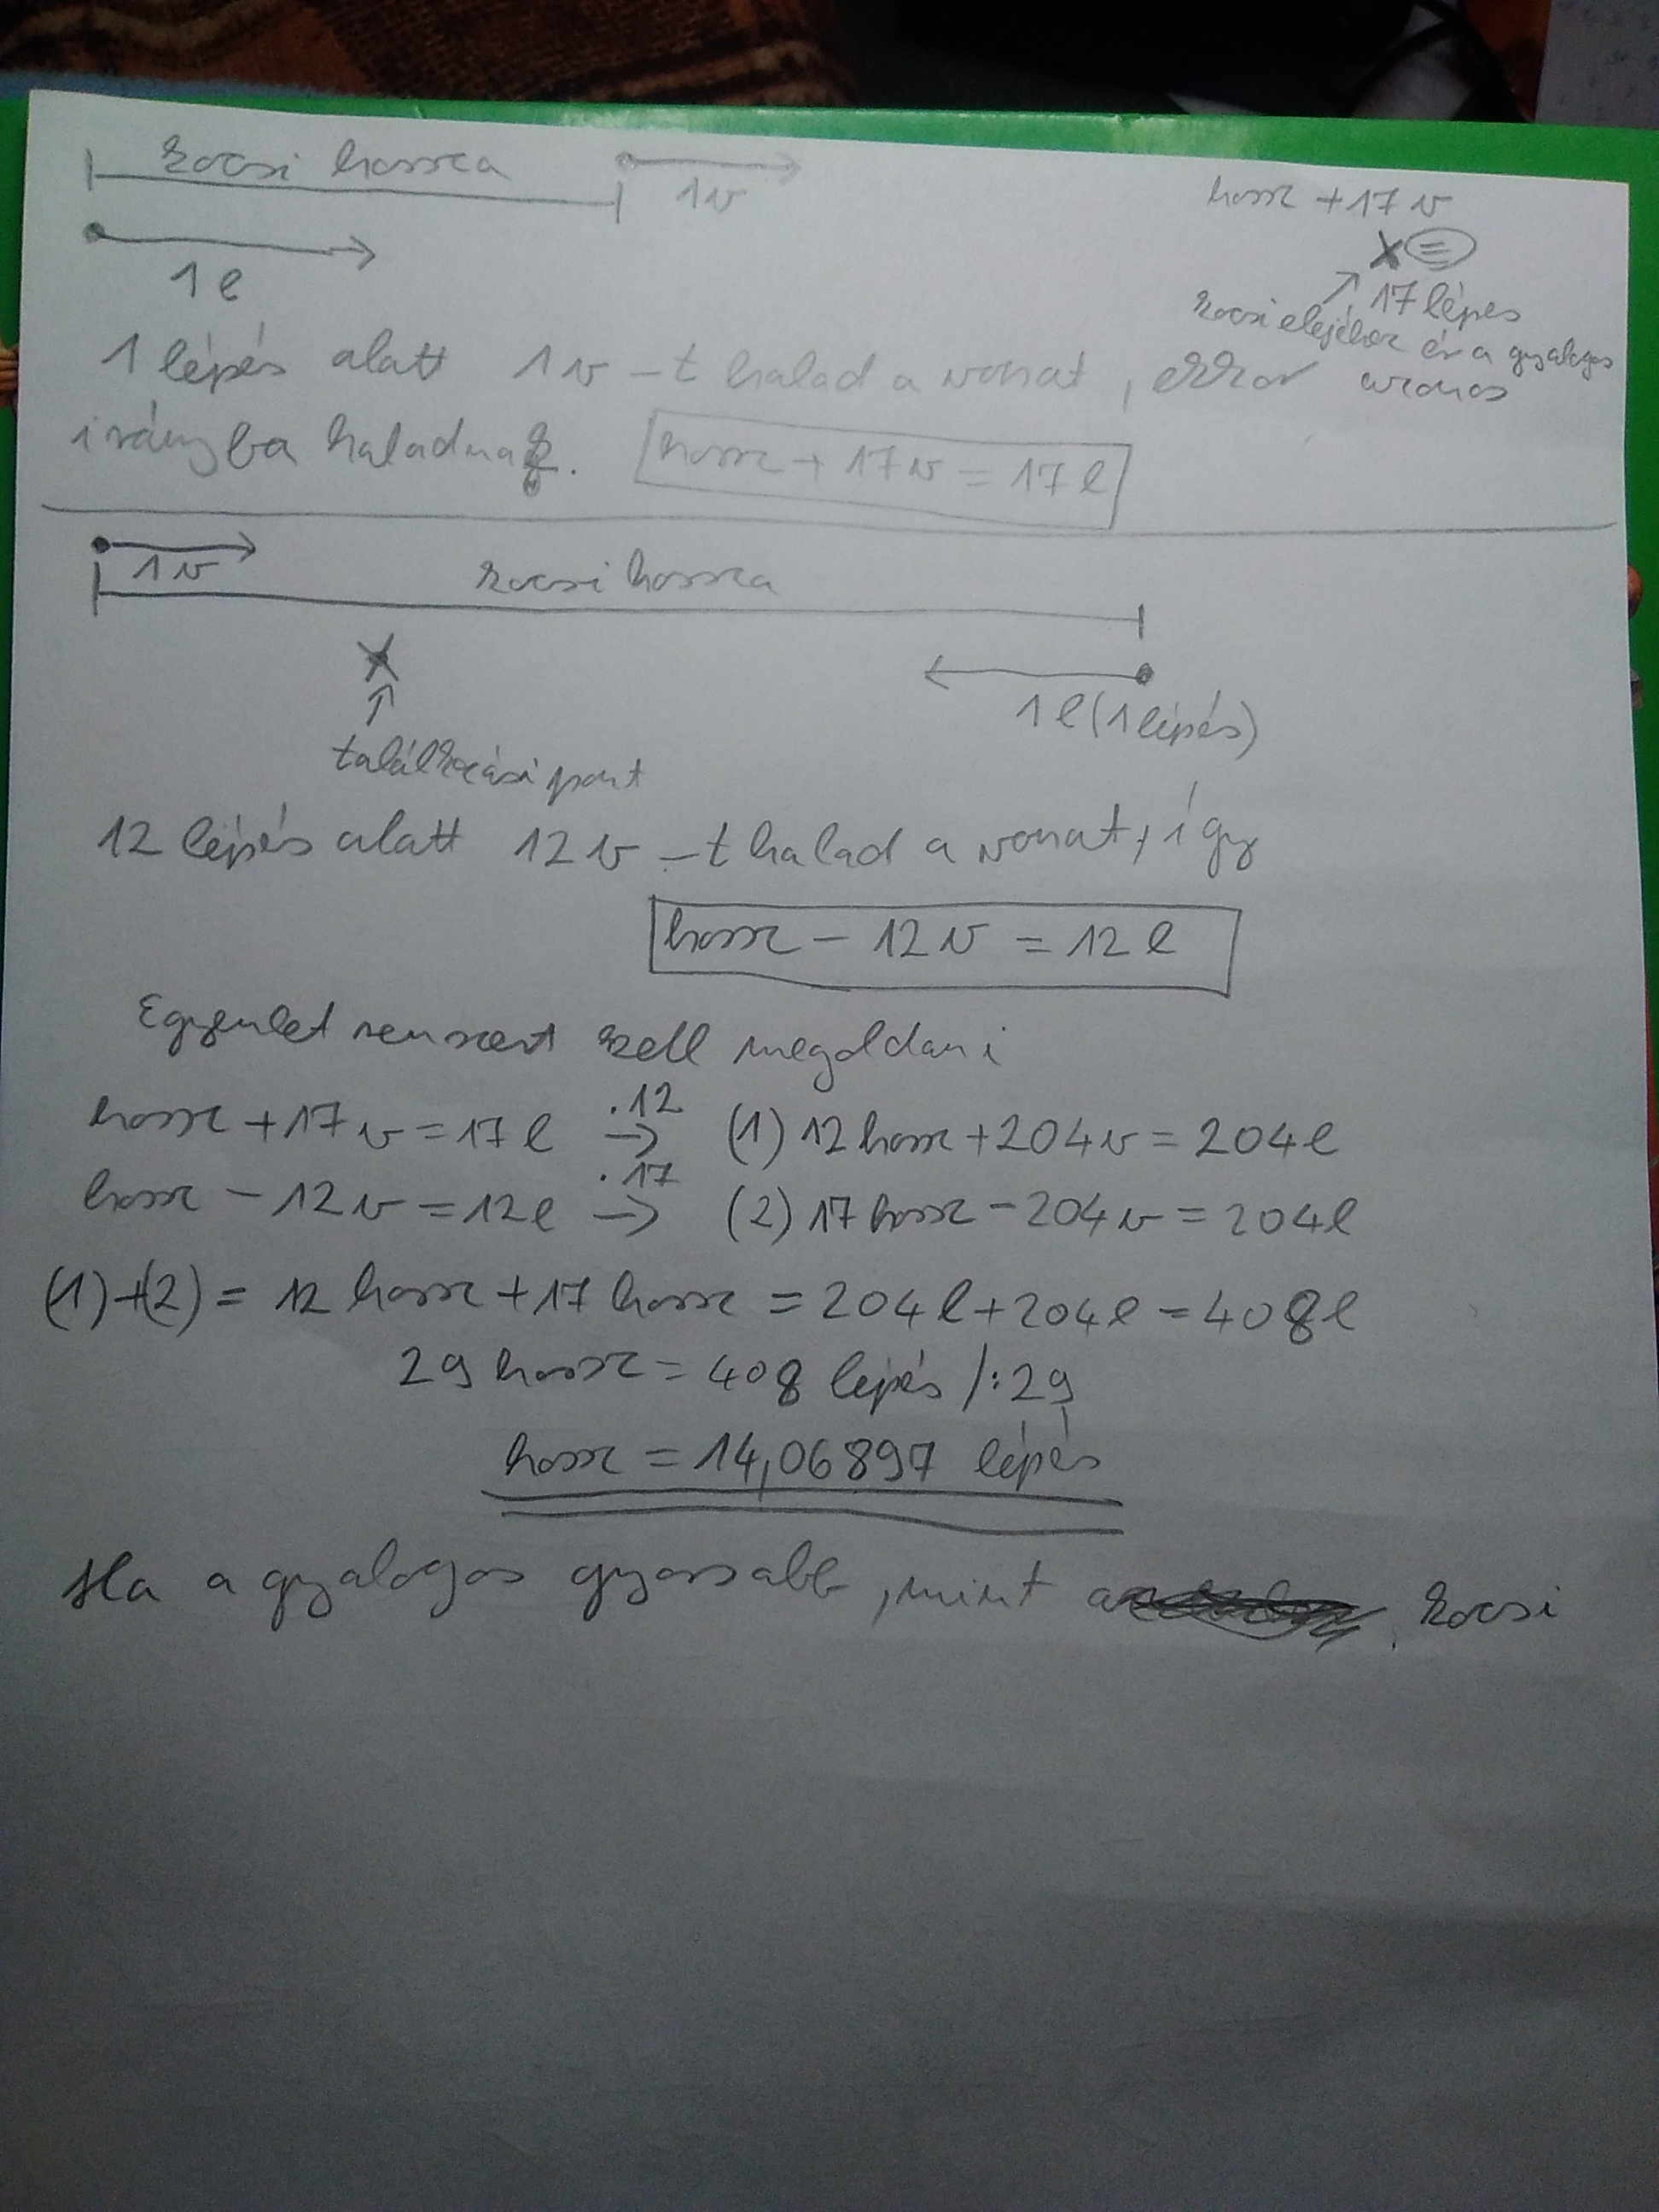 kocsi hossza
1v
1l
hossz + 17 v
=
17 lépés
kocsi elejéhez ér a gyalogos
1 lépés alatt 1v-t halad a vonat, ekkor azonos
irányba haladnak. hossz + 17v = 17l
1v
kocsi hossza
1l (1 lépés)
találkozási pont
12 lépés alatt 12v-t halad a vonat, így
hossz - 12v = 12l
Egyenletrenszert kell megoldani
hossz + 17v = 17l ·12 → (1) 12 hossz + 204v = 204l
hossz - 12v = 12l ·17 → (2) 17 hossz - 204v = 204l
(1)+(2) = 12 hossz + 17 hossz = 204l + 204l = 408l
29 hossz = 408 lépés /:29
hossz = 14,06897 lépés
Ha a gyalogos gyorsabb, mint a kocsi